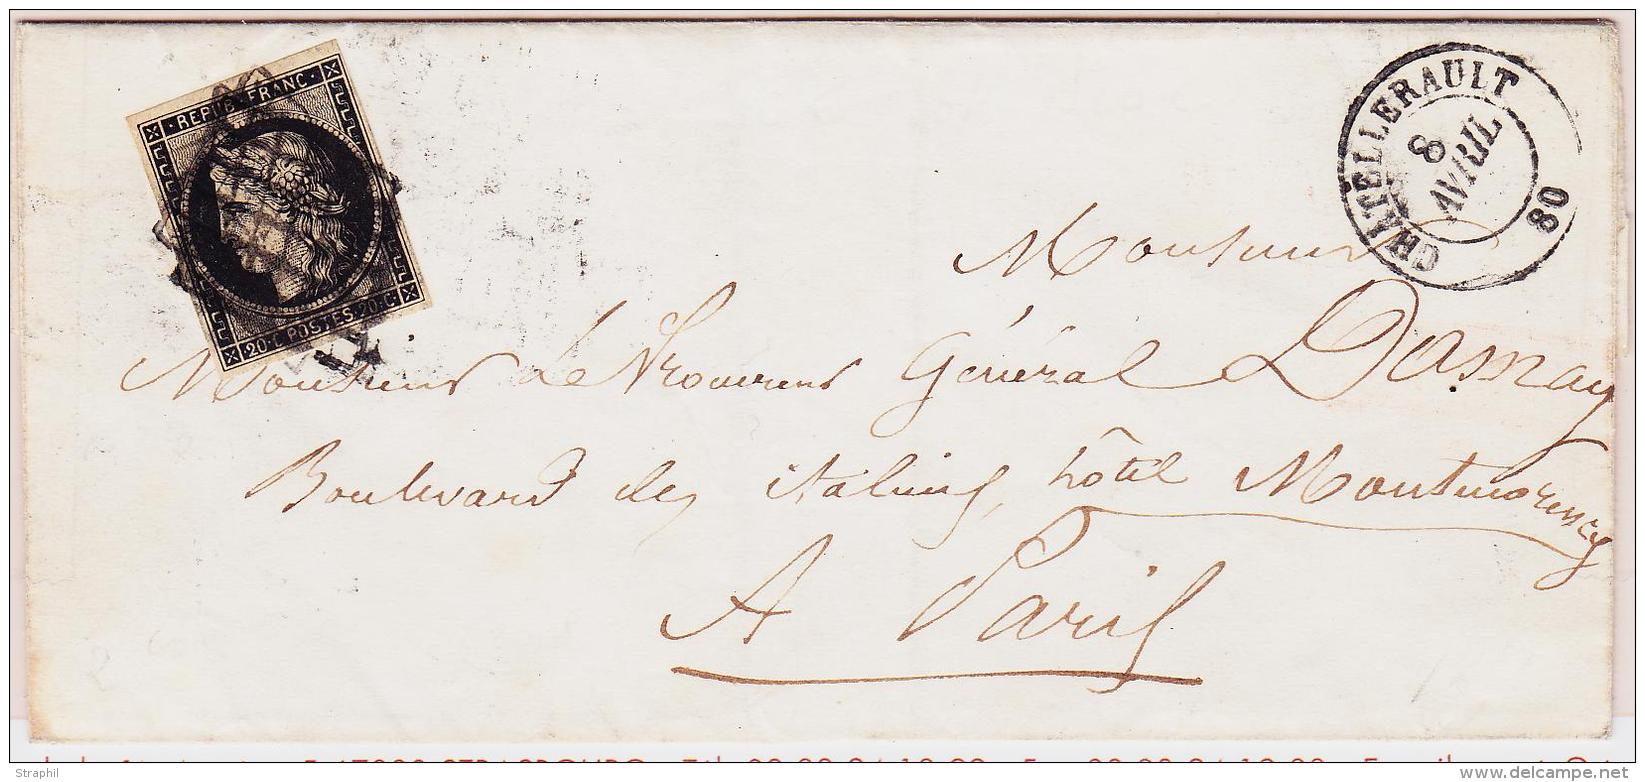 REPUB·FRANC·
20·C·POSTES·20·C·
CHATELLERAULT
8
AVRIL
80
Monsieur
Monsieur Le Procureur Général Damay
Boulevard des italiens, hôtel Montmorency
A Paris
Straphil
www.delcampe.net